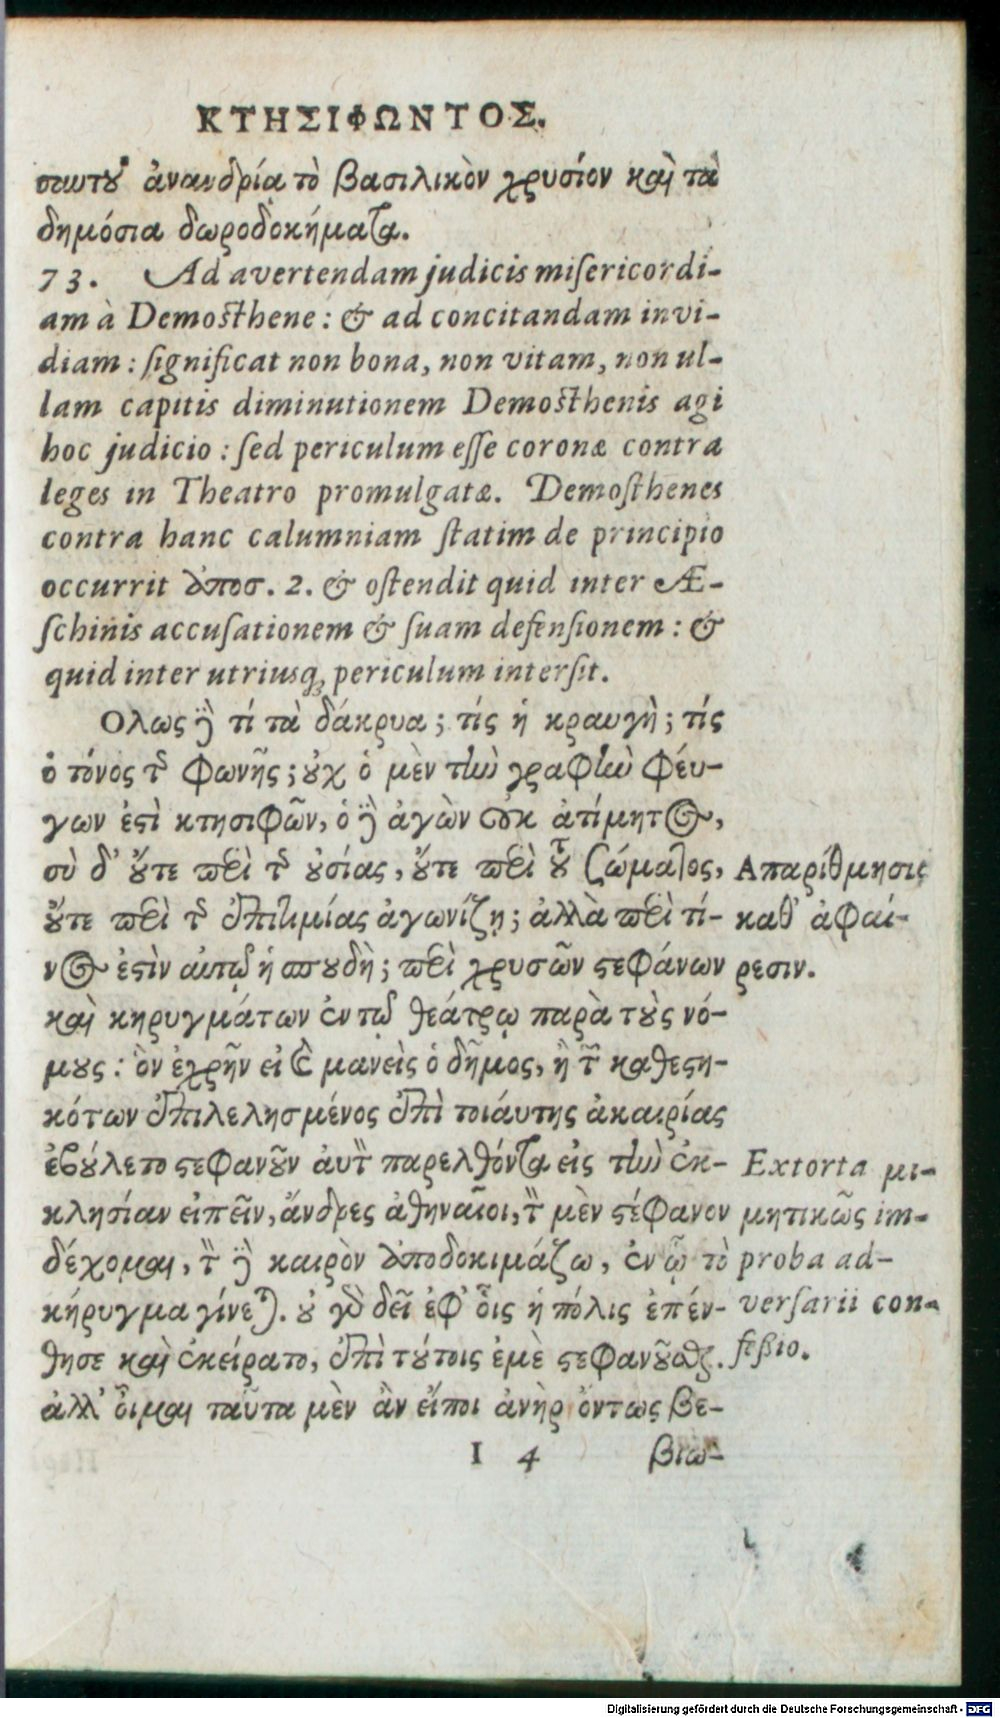 ΚΤΗΣΙΦΩΝΤΟΣ.
σαυτοῦ ἀνανδρίᾳ τὸ βασιλικὸν χρυσίον καὶ τὰ
δημόσια δωροδοκήματα.
73. Ad avertendam judicis misericordi-
am à Demosthene: & ad concitandam invi-
diam: significat non bona, non vitam, non ul-
lam capitis diminutionem Demosthenis agi
hoc judicio: sed periculum esse coronæ contra
leges in Theatro promulgatæ. Demosthenes
contra hanc calumniam statim de principio
occurrit ἀποσ. 2. & ostendit quid inter Æ-
schinis accusationem & suam defensionem: &
quid inter utriusq; periculum intersit.
Ολως δὲ τί τὰ δάκρυα; τίς ἡ κραυγὴ; τίς
ὁ τόνος τῆς φωνῆς; οὐχ ὁ μὲν τὴν γραφὴν φέυ-
γων ἐστὶ κτησιφῶν, ὁ δὲ ἀγὼν οὐκ ἀτίμητος,
σὺ δ' οὔτε περὶ τῆς οὐσίας, οὔτε περὶ τοῦ σώματος,
οὔτε περὶ τῆς ἐπιτιμίας ἀγωνίζῃ; ἀλλὰ περὶ τί-
νος ἐστὶν αὐτῷ ἡ σπουδὴ; περὶ χρυσῶν στεφάνων
καὶ κηρυγμάτων ἐν τῷ θεάτρῳ παρὰ τοὺς νό-
μους: ὃν ἐχρῆν εἰ καὶ μανεὶς ὁ δῆμος, ἢ τῶν καθεστη-
κότων ἐπιλελησμένος ἐπὶ τοιάυτης ἀκαιρίας
ἐβούλετο στεφανοῦν ἀυτὸν παρελθόντα εἰς τὴν ἐκ-
κλησίαν εἰπεῖν, ἄνδρες ἀθηναῖοι, τὸν μὲν στέφανον
δέχομαι, τὸν δὲ καιρὸν ἀποδοκιμάζω, ἐν ᾧ τὸ
κήρυγμα γίνεται. οὐ γὰρ δεῖ ἐφ' οἷς ἡ πόλις ἐπέν-
θησε καὶ ἐκείρατο, ἐπὶ τούτοις ἐμὲ στεφανοῦσθαι.
ἀλλ' οἶμαι ταῦτα μὲν ἂν εἴποι ἀνὴρ ὄντως βε-
I 4 βιω-
Απαρίθμησις
καθ' ἀφαί-
ρεσιν.
Extorta μι-
μητικῶς im-
proba ad-
versarii con-
fessio.
Digitalisierung gefördert durch die Deutsche Forschungsgemeinschaft - DFG